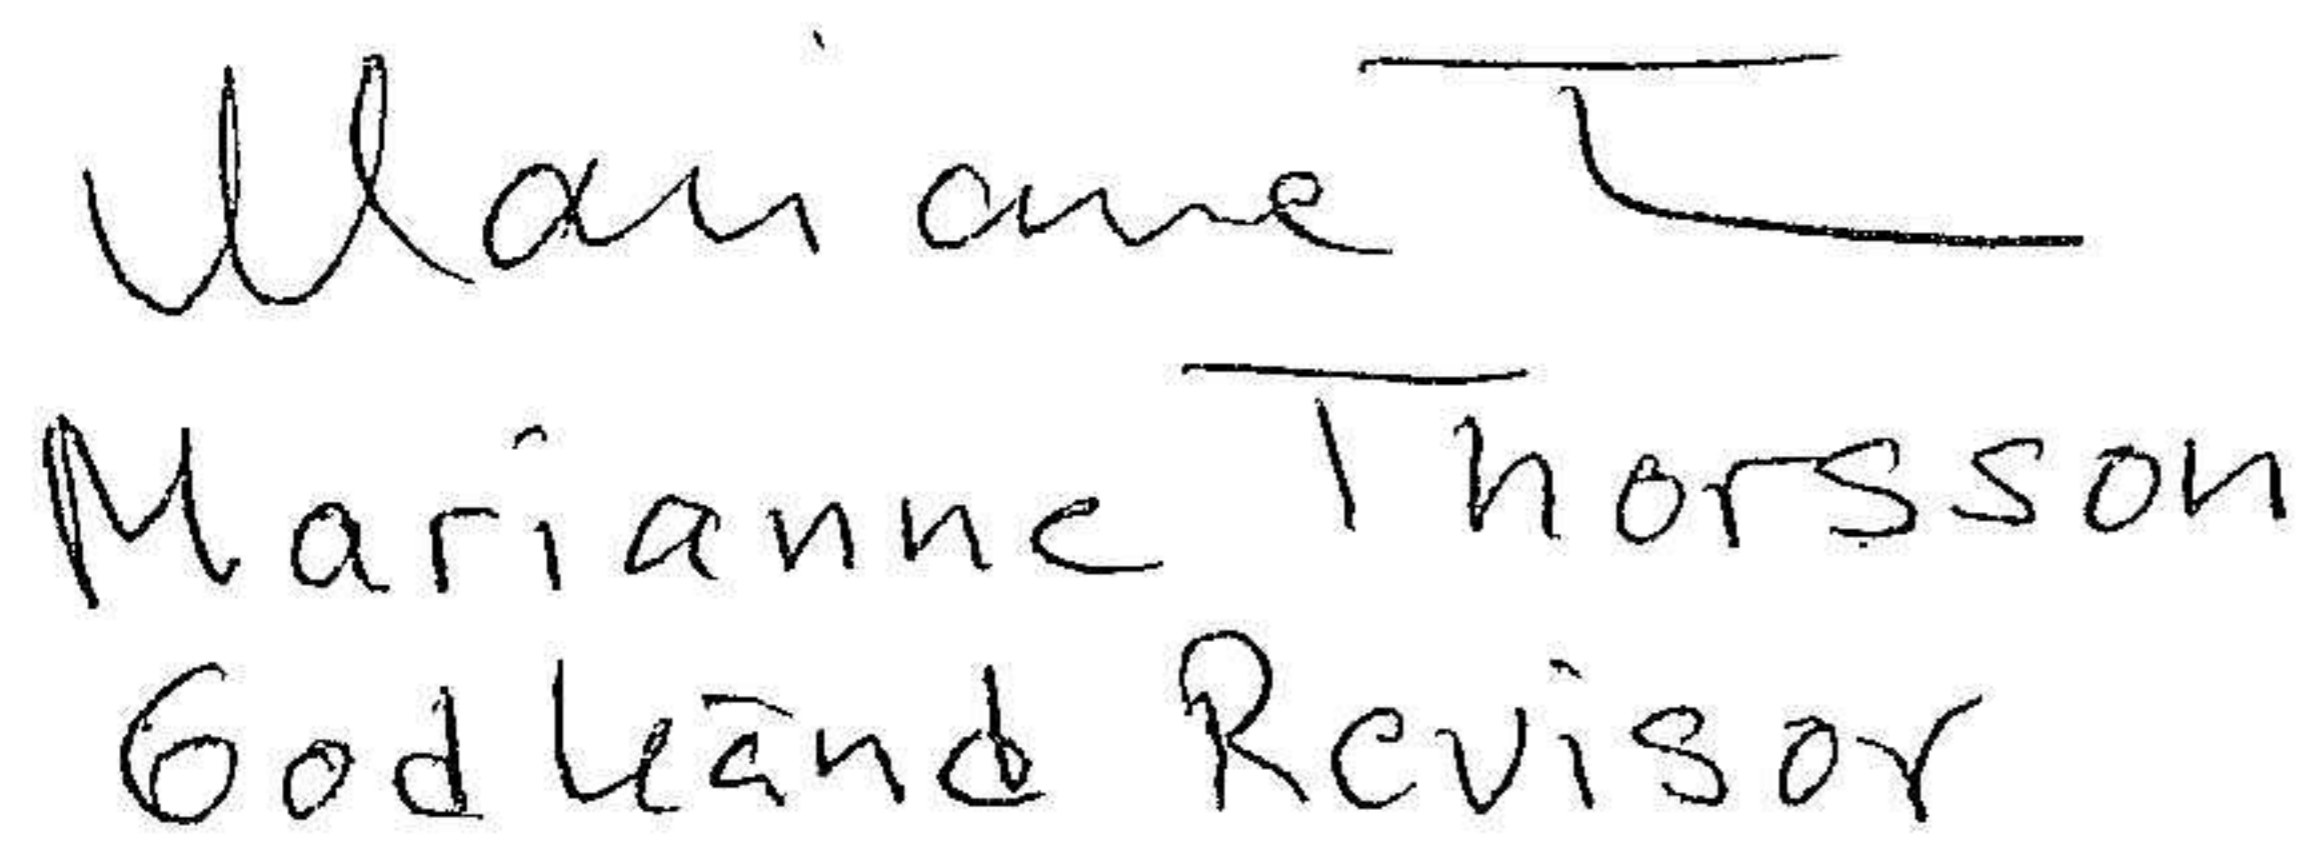 Marianne T
Marianne Thorsson
Godkänd Revisor